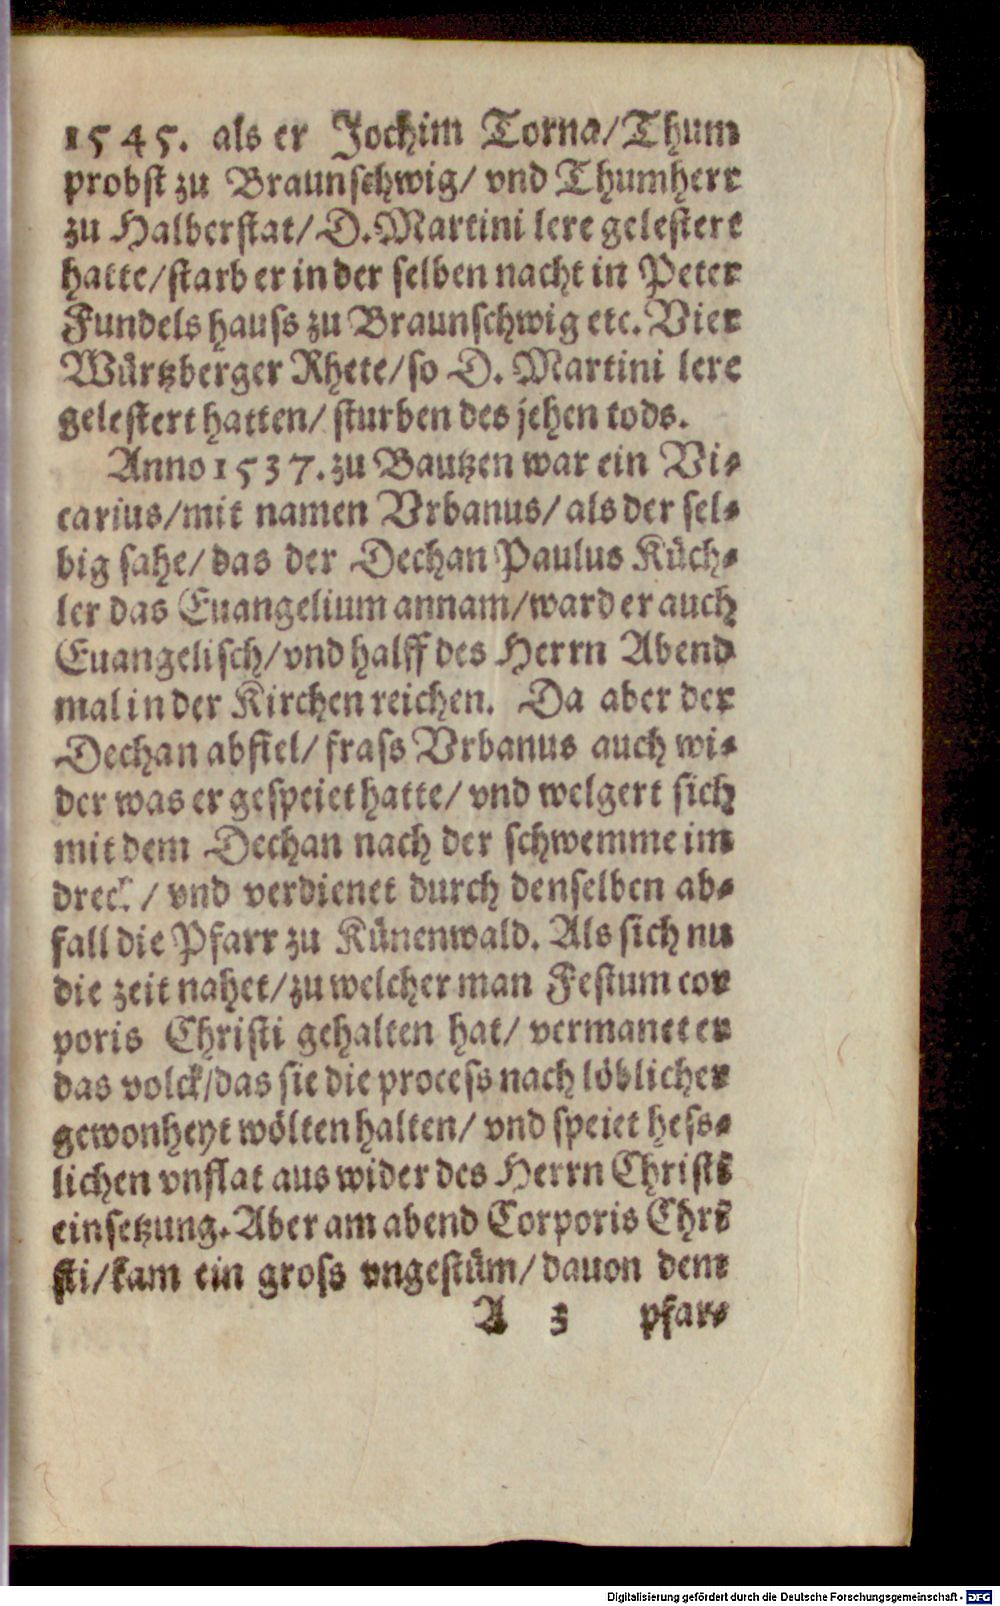 1545. als er Jochim Torna/Thum
probst zu Braunschwig/ vnd Thumherr
zu Halberstat/ D. Martini lere gelestert
hatte/starb er in der selben nacht in Peter
Fundels hauss zu Braunschwig etc. Vier
Würtzberger Rhete/so D. Martini lere
gelestert hatten/ sturben des jehen tods.
Anno 1537. zu Bautzen war ein Vi-
carius/mit namen Vrbanus/ als der sel-
big sahe/ das der Dechan Paulus Küch-
ler das Euangelium annam/ward er auch
Euangelisch/vnd halff des Herrn Abend
mal in der Kirchen reichen. Da aber der
Dechan abfiel/ frass Vrbanus auch wi-
der was er gespeiet hatte/ vnd welgert sich
mit dem Dechan nach der schwemme im
dreck / vnd verdienet durch denselben ab-
fall die Pfarr zu Künenwald. Als sich nu
die zeit nahet/zu welcher man Festum cor
poris Christi gehalten hat/ vermanet er
das volck/das sie die process nach löblicher
gewonheyt wölten halten/ vnd speiet hess-
lichen vnflat aus wider des Herrn Christi
einsetzung. Aber am abend Corporis Chri
sti/kam ein gross vngestüm/ dauon dem
A 3 pfar-
Digitalisierung gefördert durch die Deutsche Forschungsgemeinschaft - DFG